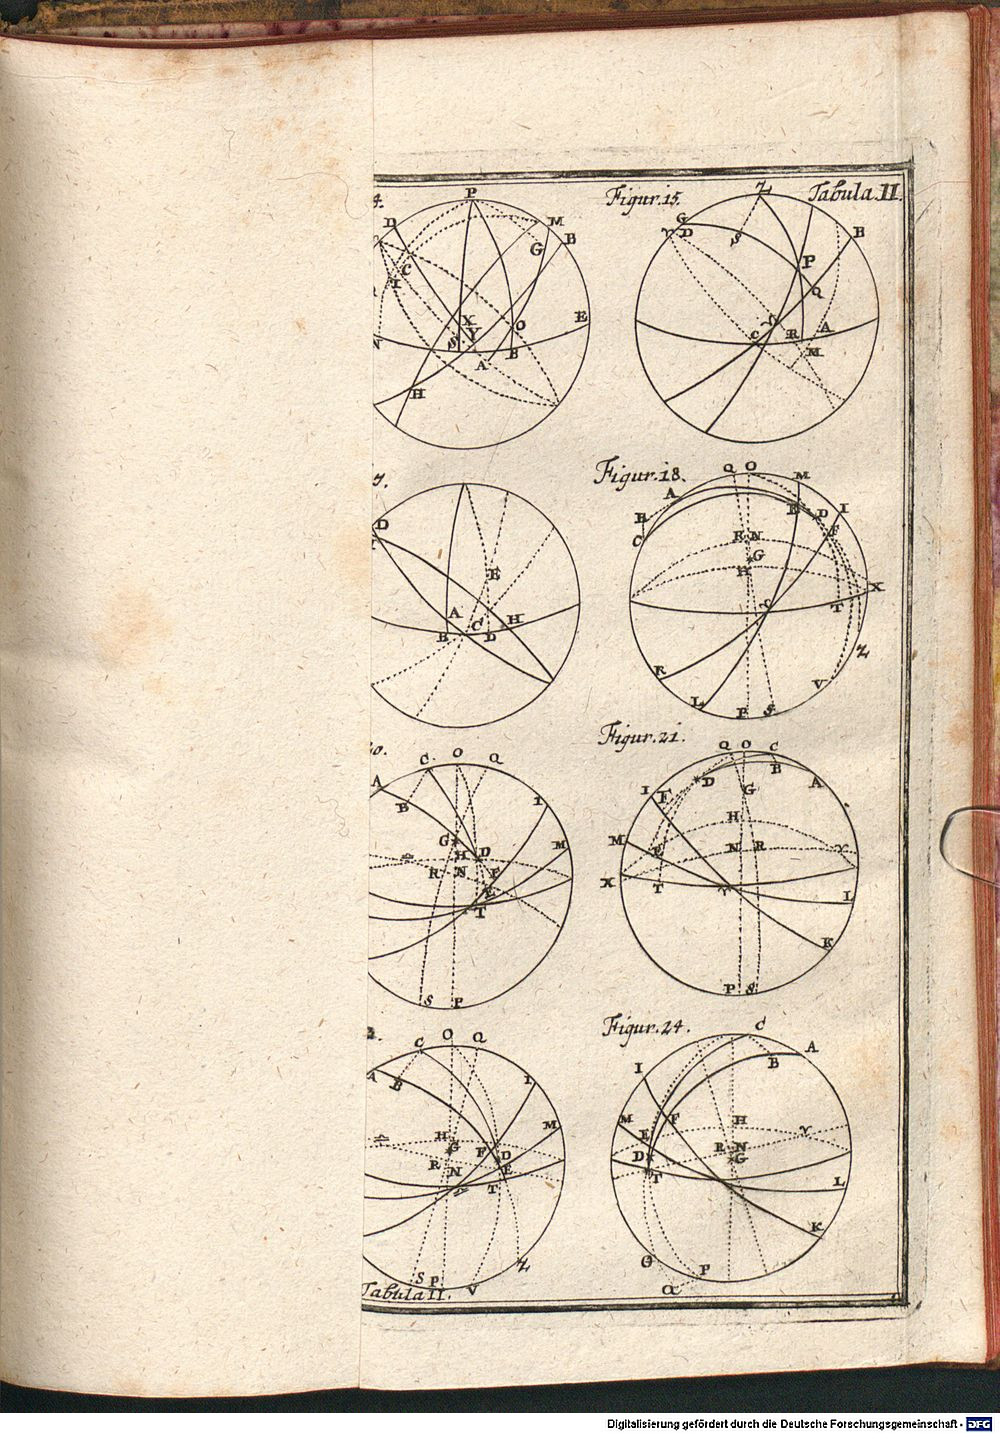 4.
Figur. 15.
Tabula. II.
P
D
M
B
G
C
I
X
Y
O
E
S
N
A
B
H
Z
G
γ D
S
B
P
Q
γ
C
R
A
M
7.
Figur. 18.
D
E
A
B
C
D
H
Q O
M
A
B
C
E
D
I
F
R N
G
H
X
T
C
Z
R
L
P
S
V
20.
Figur. 21.
A
C
O
Q
B
I
M
G
H
D
R
N
F
E
T
S
P
Q O
C
D
B
A
I
F
G
H
M
E
N
R
X
T
L
K
P
S
Figur. 24.
C
O
Q
A
B
I
M
H
G
F
D
R
N
E
T
S
P
V
Z
Tabula II.
C
A
B
I
M
F
H
E
D
R
N
G
T
L
K
P
Digitalisierung gefördert durch die Deutsche Forschungsgemeinschaft - DFG